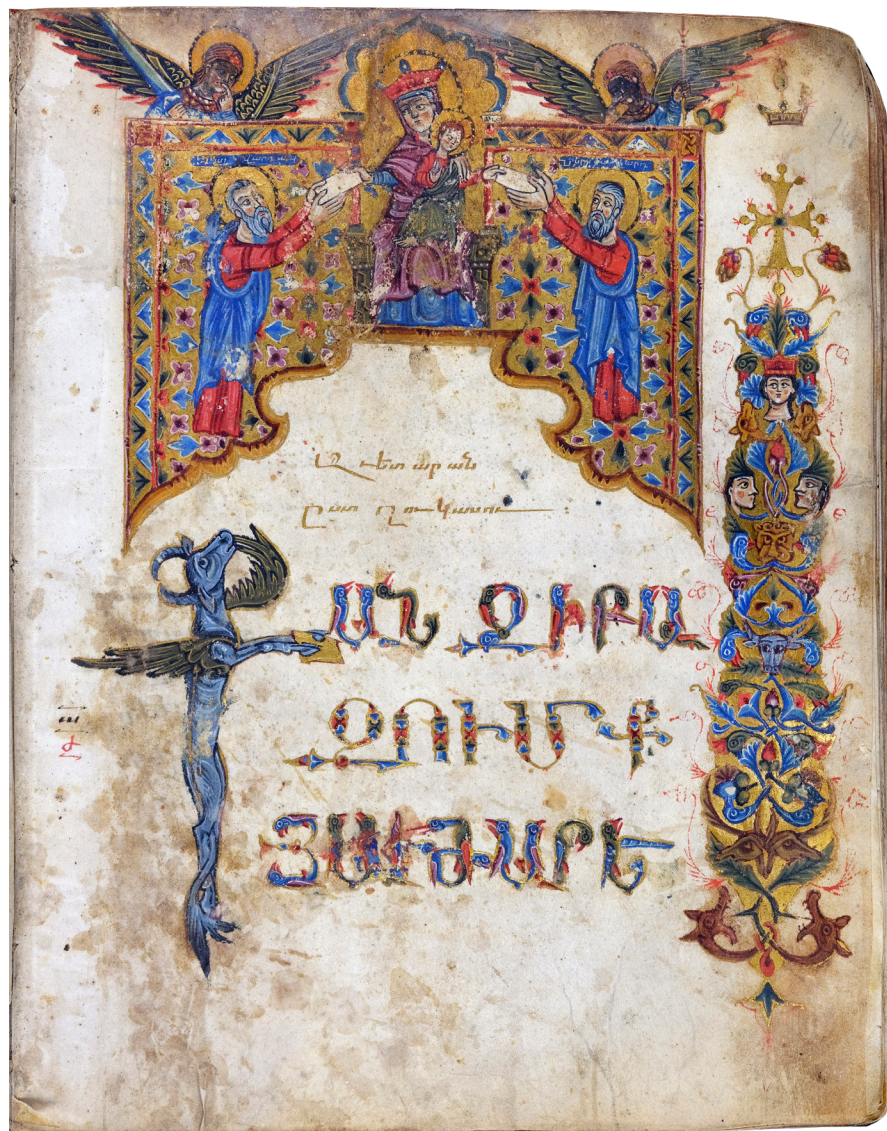 Աւետարան
ըստ ղուկասու :
ՔԱՆԶԻԲԱ
ԶՈՒՄՔ
ՅԱՒԺԱՐԵ
ա